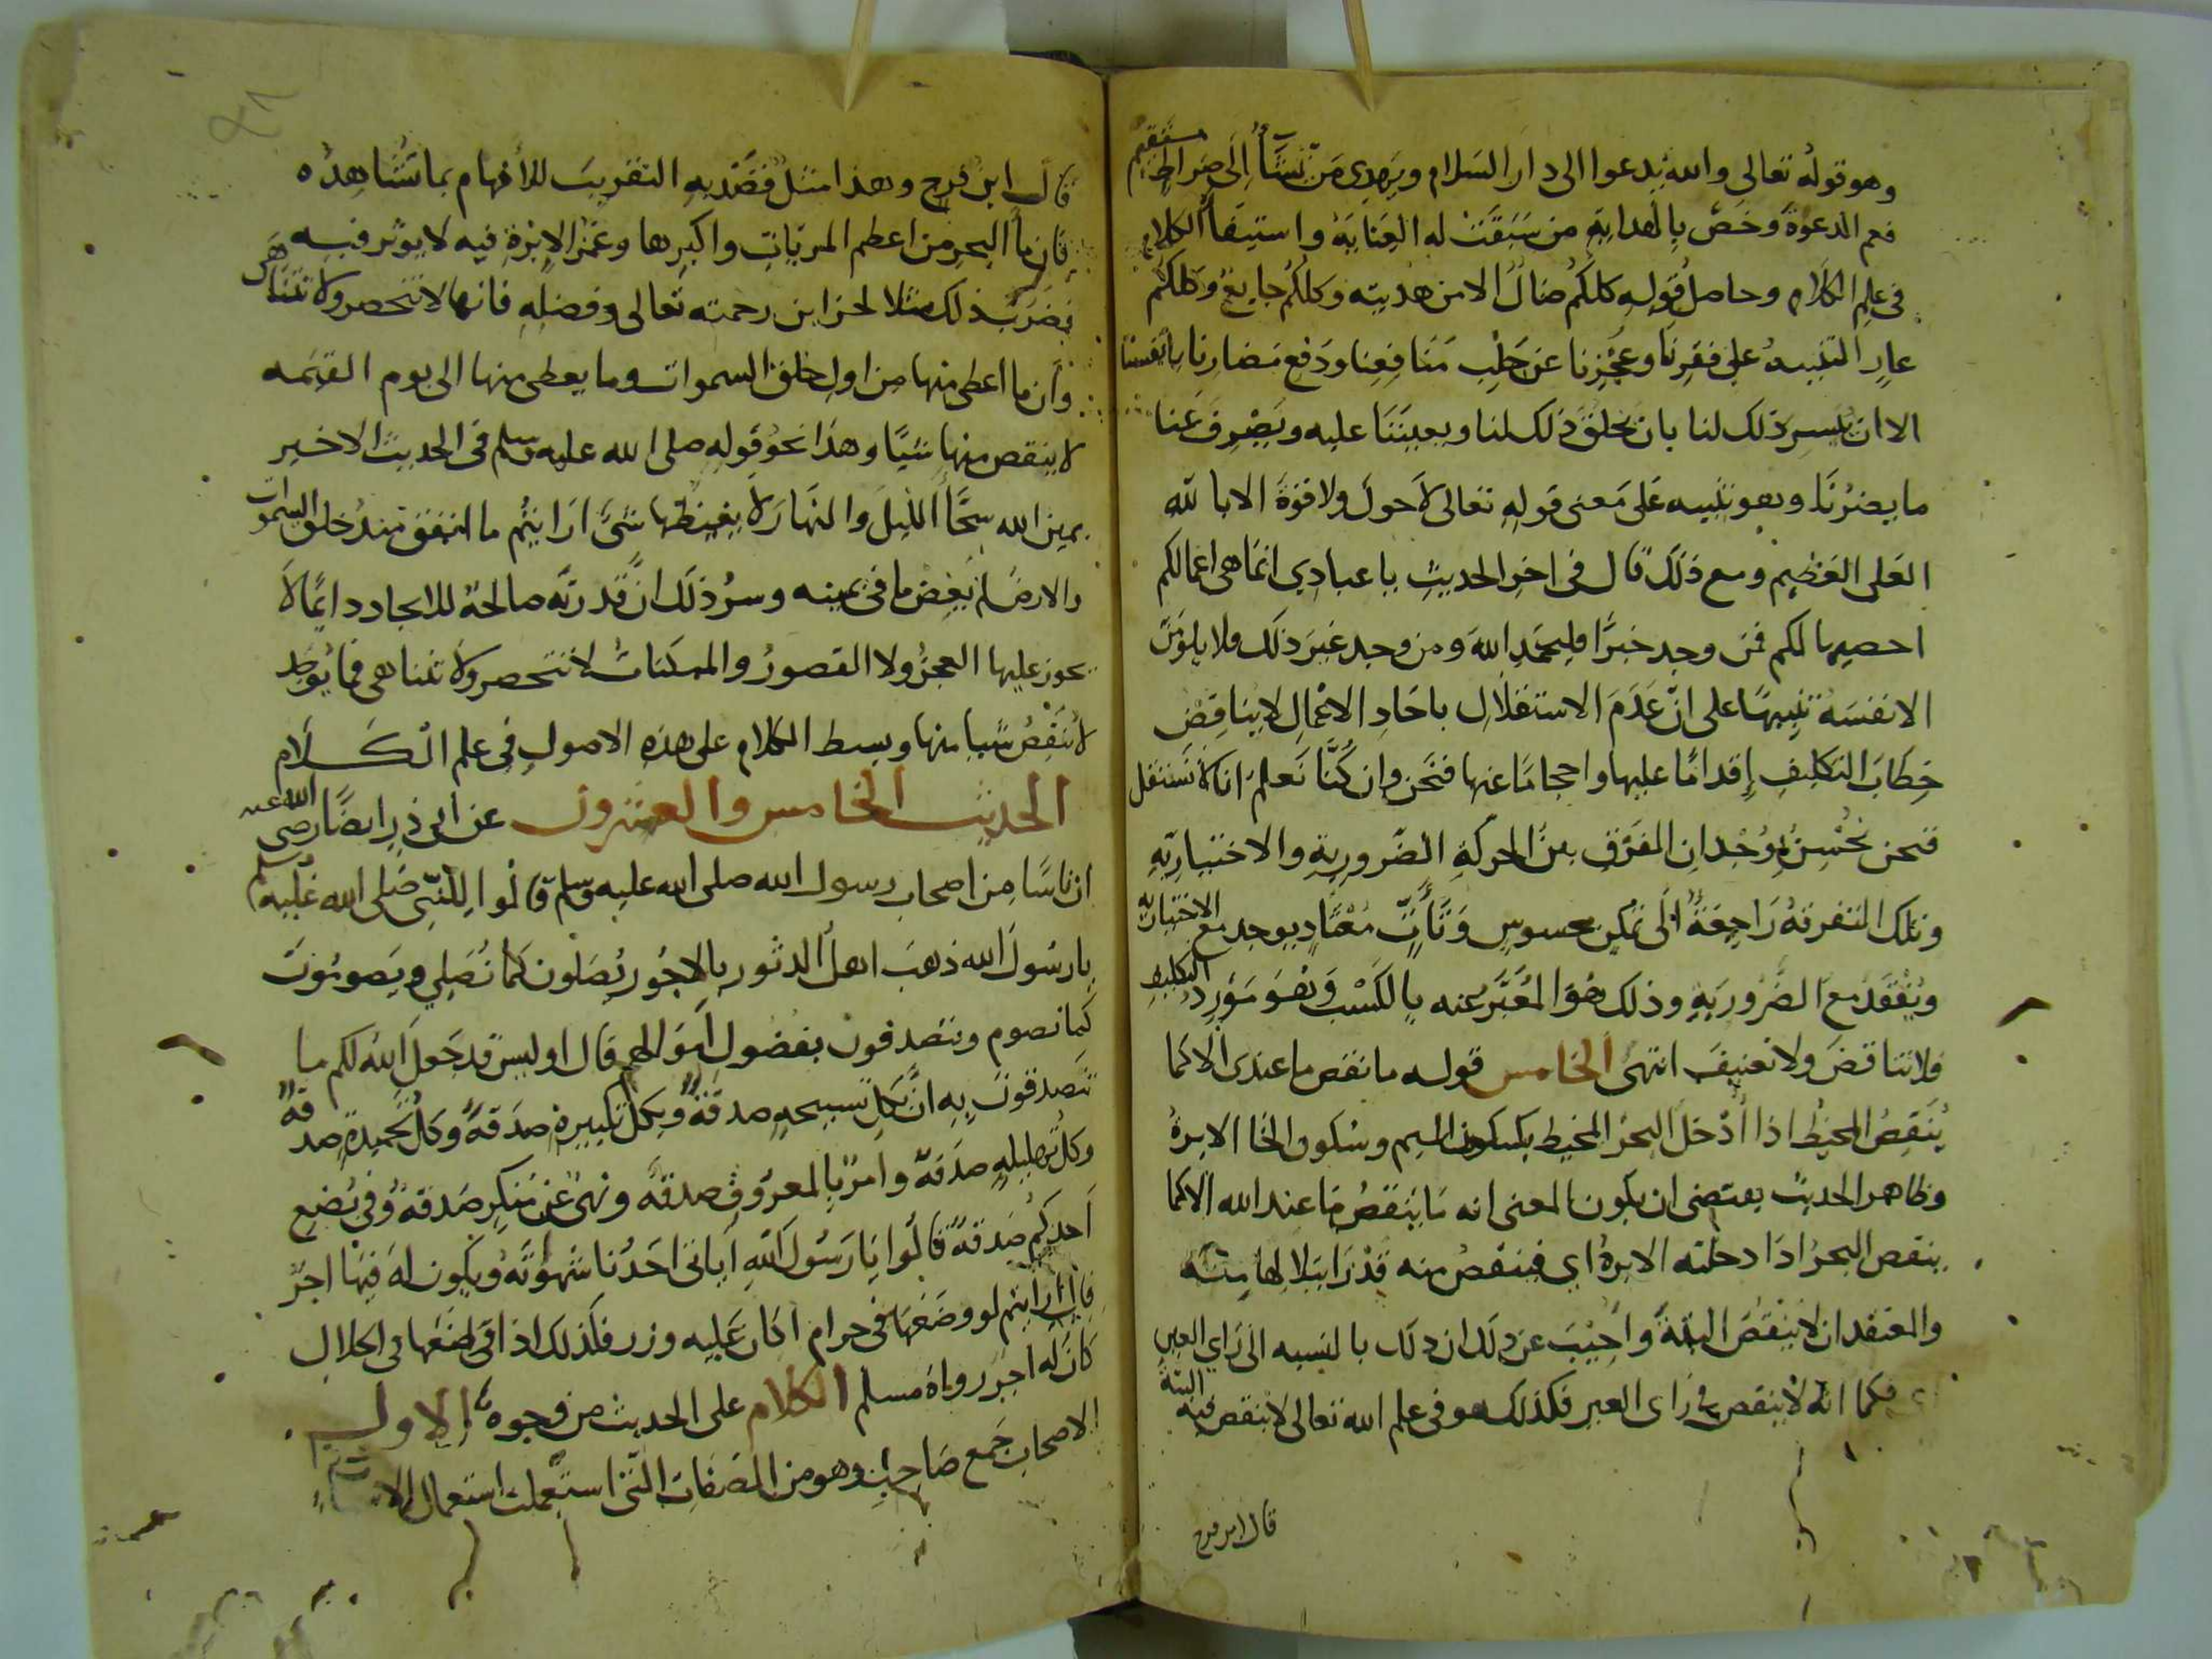 وهو قوله تعالى والله يدعوا الى دار السلام ويهدي من يشاء الى صراط مستقيم
فعم الدعوة وخص بالهداية من سبقت له العناية واستيفاء الكلام
في علم الكلام وحاصل قوله كلكم ضال الا من هديته وكلكم جايع وكلكم
عار التنبيه على فقرنا وعجزنا عن جلب منافعنا ودفع مضارنا بانفسنا
الا ان ييسر ذلك لنا بان يخلق ذلك لنا ويعيننا عليه ويصرف عنا
ما يضرنا وهو تنبيه على معنى قوله تعالى لا حول ولا قوة الا بالله
العلى العظيم ومع ذلك قال في اخر الحديث يا عبادي انما هى اعمالكم
احصيها لكم فمن وجد خيرا فليحمد الله ومن وجد غير ذلك فلا يلومن
الا نفسه تنبيها على ان عدم الاستقلال باحاد الاعمال لا يناقض
خطاب التكليف إقداما عليها واحجاما عنها فنحن وان كنا نعلم انا لا نستقل
فنحن نحس بوجدان الفرق بين الحركة الضرورية والاختيارية
وتلك التفرقة راجعة الى تمكن محسوس وتأت معتاد يوجد مع الاختيارية
ويفقد مع الضرورية وذلك هو المعبر عنه بالكسب وهو مورد التكليف
فلا تناقض ولا تعنيف انتهى الخامس قوله ما نقص ما عندى الا كما
ينقص المخيط اذا أدخل البحر المخيط بكسر الميم وسكون الخا الابرة
وظاهر الحديث يقتضى ان يكون المعنى انه ما ينقص ما عند الله الا كما
ينقص البحر اذا دخلته الابرة اي فينقص منه قدرا
والمعتقد ان لا ينقص البتة وأجيب عن ذلك ان ذلك بالنسبه الى راي العين
فكما انه لا ينقص في راى العين فكذلك هو في علم الله تعالى لا ينقص فيه البتة
قال ابن فرح
قال ابن فرح وهذا مثل قصد به التقريب للافهام بما تشاهده
فان ماء البحر من اعظم المرئيات واكبرها وغمز الابرة فيه لا يوثر فيه
فضرب ذلك مثلا لخزاين رحمته تعالى وفضله فانها لا تنحصر ولا تتناهى
وأن ما اعطى منها من اول خلق السموات وما يعطى منها الى يوم القيمه
لا ينقص منها شيًا وهذا نحو قوله صلى الله عليه وسلم في الحديث الاخير
يمين الله سحا الليل والنهار لا يغيضها شى ارايتم ما انفق منذ خلق السموات
والارض لم يغض ما في يمينه وسر ذلك ان قدرته صالحة للايجاد دايما لا
يجوز عليها العجز ولا القصور والممكنات لا تنحصر ولا تتناهى فما يوجد
لا ينقص شيا منها وبسط الكلام على هذه الاصول في علم الكلام
الحديث الخامس والعشرون عن ابى ذر ايضا رضى الله عنه
ان ناسا من اصحاب رسول الله صلى الله عليه وسلم قالوا للنبى صلى الله عليه وسلم
يا رسول الله ذهب اهل الدثور بالاجور يصلون كما نصلي ويصومون
كما نصوم ويتصدقون بفضول اموالهم قال اوليس قد جعل الله لكم ما
تصدقون به ان بكل تسبيحة صدقة وبكل تكبيرة صدقة وكل تحميدة صدقة
وكل تهليلة صدقة وامر بالمعروف صدقة ونهى عن منكر صدقة وفي بضع
أحدكم صدقة قالوا يا رسول الله أياتى احدنا شهوته ويكون له فيها اجر
قال أرايتم لو وضعها في حرام اكان عليه وزر فكذلك اذا وضعها في الحلال
كان له اجر رواه مسلم الكلام على الحديث من وجوه الاول
الاصحاب جمع صاحب وهو من الصفات التى استعملت استعمال